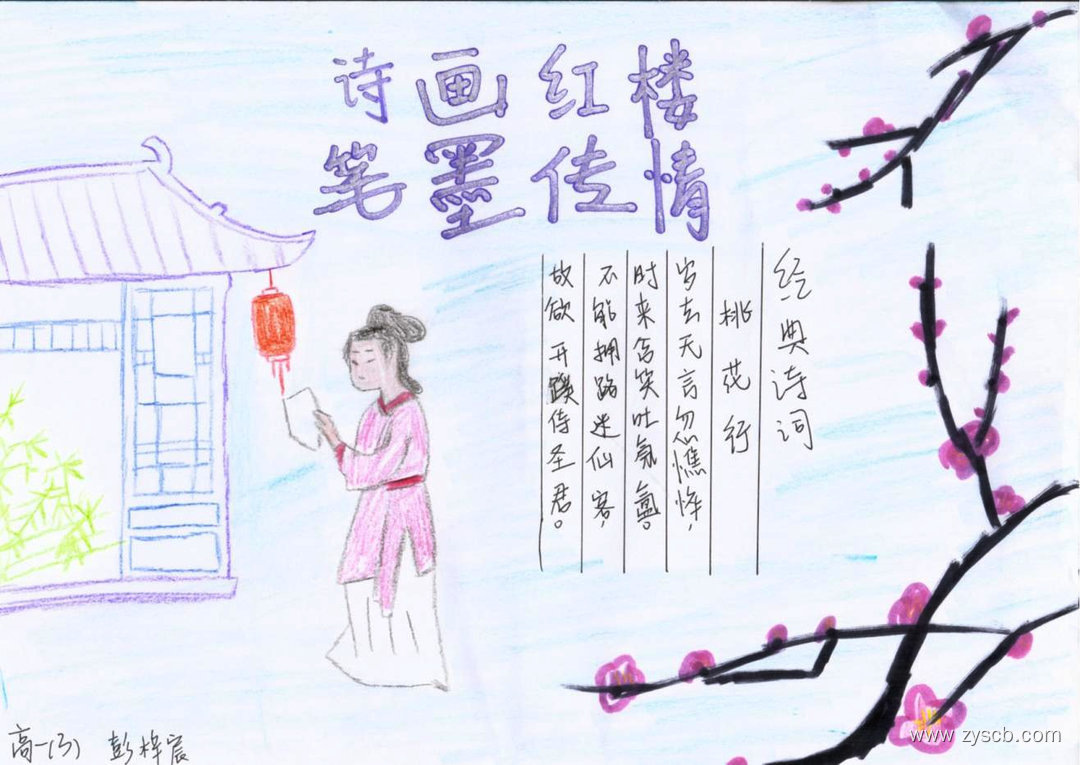 诗画红楼
笔墨传情
绘典诗词
桃花行
岁去无言忽憔悴，
时来含笑吐氛氲。
不能拥路迷仙客，
故欲开蹊侍圣君。
高一(3) 彭梓宸
www.zyscb.com